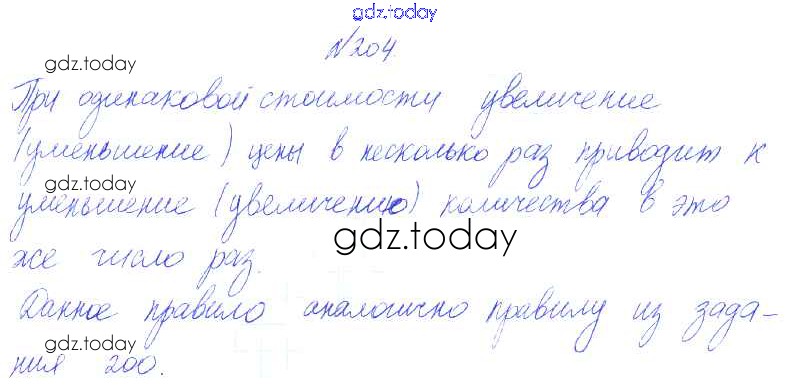 gdz.today
№204.
gdz.today
При одинаковой стоимости увеличение
(уменьшение) цены в несколько раз приводит к
gdz.today
уменьшение (увеличению) количества в это
gdz.today
же число раз.
Данное правило аналогично правилу из зада-
gdz.today
ния 200.